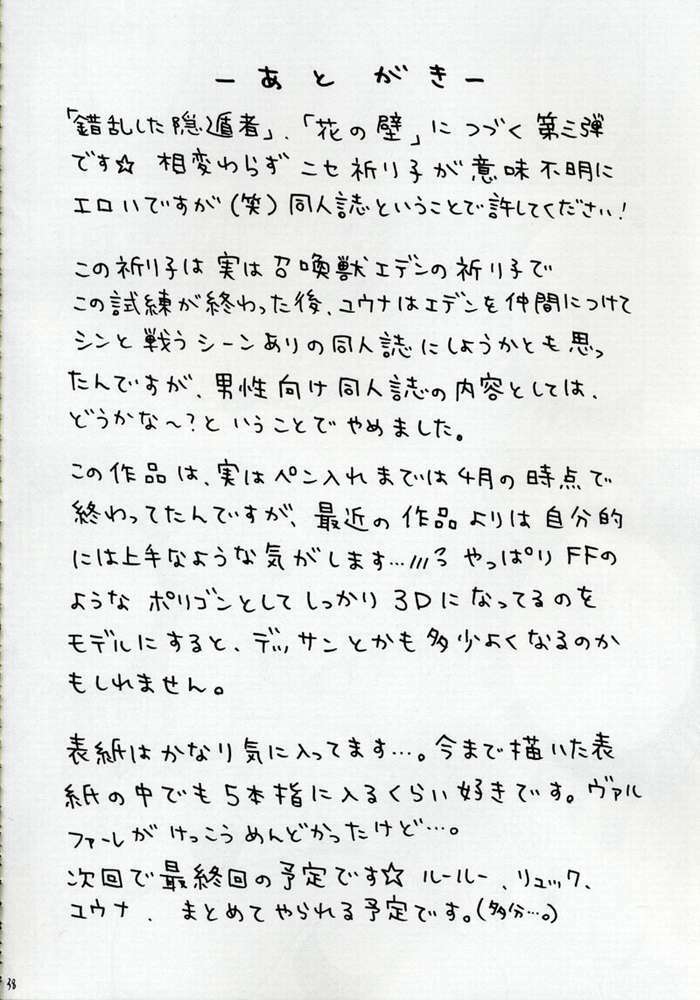 ーあとがきー
「錯乱した隠遁者」、「花の壁」につづく第三弾
です☆ 相変わらずニセ祈り子が意味不明に
エロいですが(笑)同人誌ということで許してください!
この祈り子は実は召喚獣エデンの祈り子で
この試練が終わった後、ユウナはエデンを仲間につけて
シンと戦うシーンありの同人誌にしようかとも思っ
たんですが、男性向け同人誌の内容としては、
どうかな〜?ということでやめました。
この作品は、実はペン入れまでは4月の時点で
終わってたんですが、最近の作品よりは自分的
には上手なような気がします…/// やっぱりFFの
ようなポリゴンとしてしっかり3Dになってるのを
モデルにすると、デッサンとかも多少よくなるのか
もしれません。
表紙はかなり気に入ってます…。今まで描いた表
紙の中でも5本指に入るくらい好きです。ヴァル
ファーレがけっこうめんどかったけど…。
次回で最終回の予定です☆ ルールー、リュック、
ユウナ、まとめてやられる予定です。(多分…。)
38